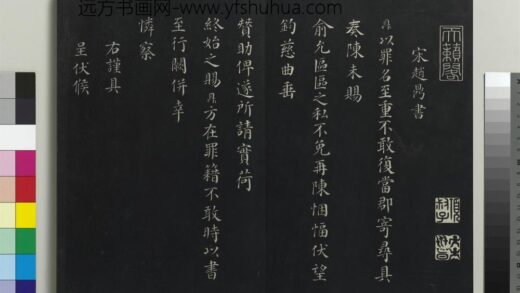 远方书画网-www.yfshuhua.com
天籟閣
宋趙鼎書
鼎以罪名至重不敢復當郡寄尋具
奏陳未賜
俞允區區之私不免再陳悃愊伏望
鈞慈曲垂
贊助俾遂所請實荷
終始之賜鼎方在罪籍不敢時以書
至行闕併幸
憐察
右謹具
呈伏候